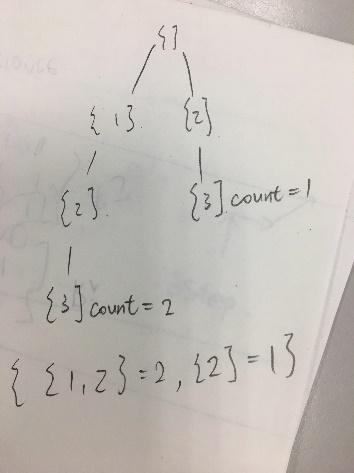 {}
{1} {2}
{2} {3} count = 1
{3} count = 2
{ {1,2} = 2, {2} = 1}